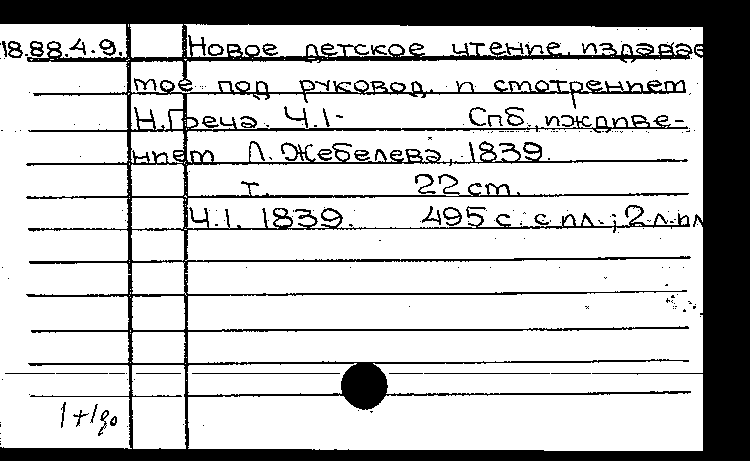 18.88.4.9. Новое детское чтение, издавае
мое под руковод. и смотрением
Н.Греча. Ч.1- Спб., иждиве-
нием Л. Жебелева, 1839.
т. 22 cm.
Ч.1. 1839. 495 с. с ил.; 2 л. ил
1+1до